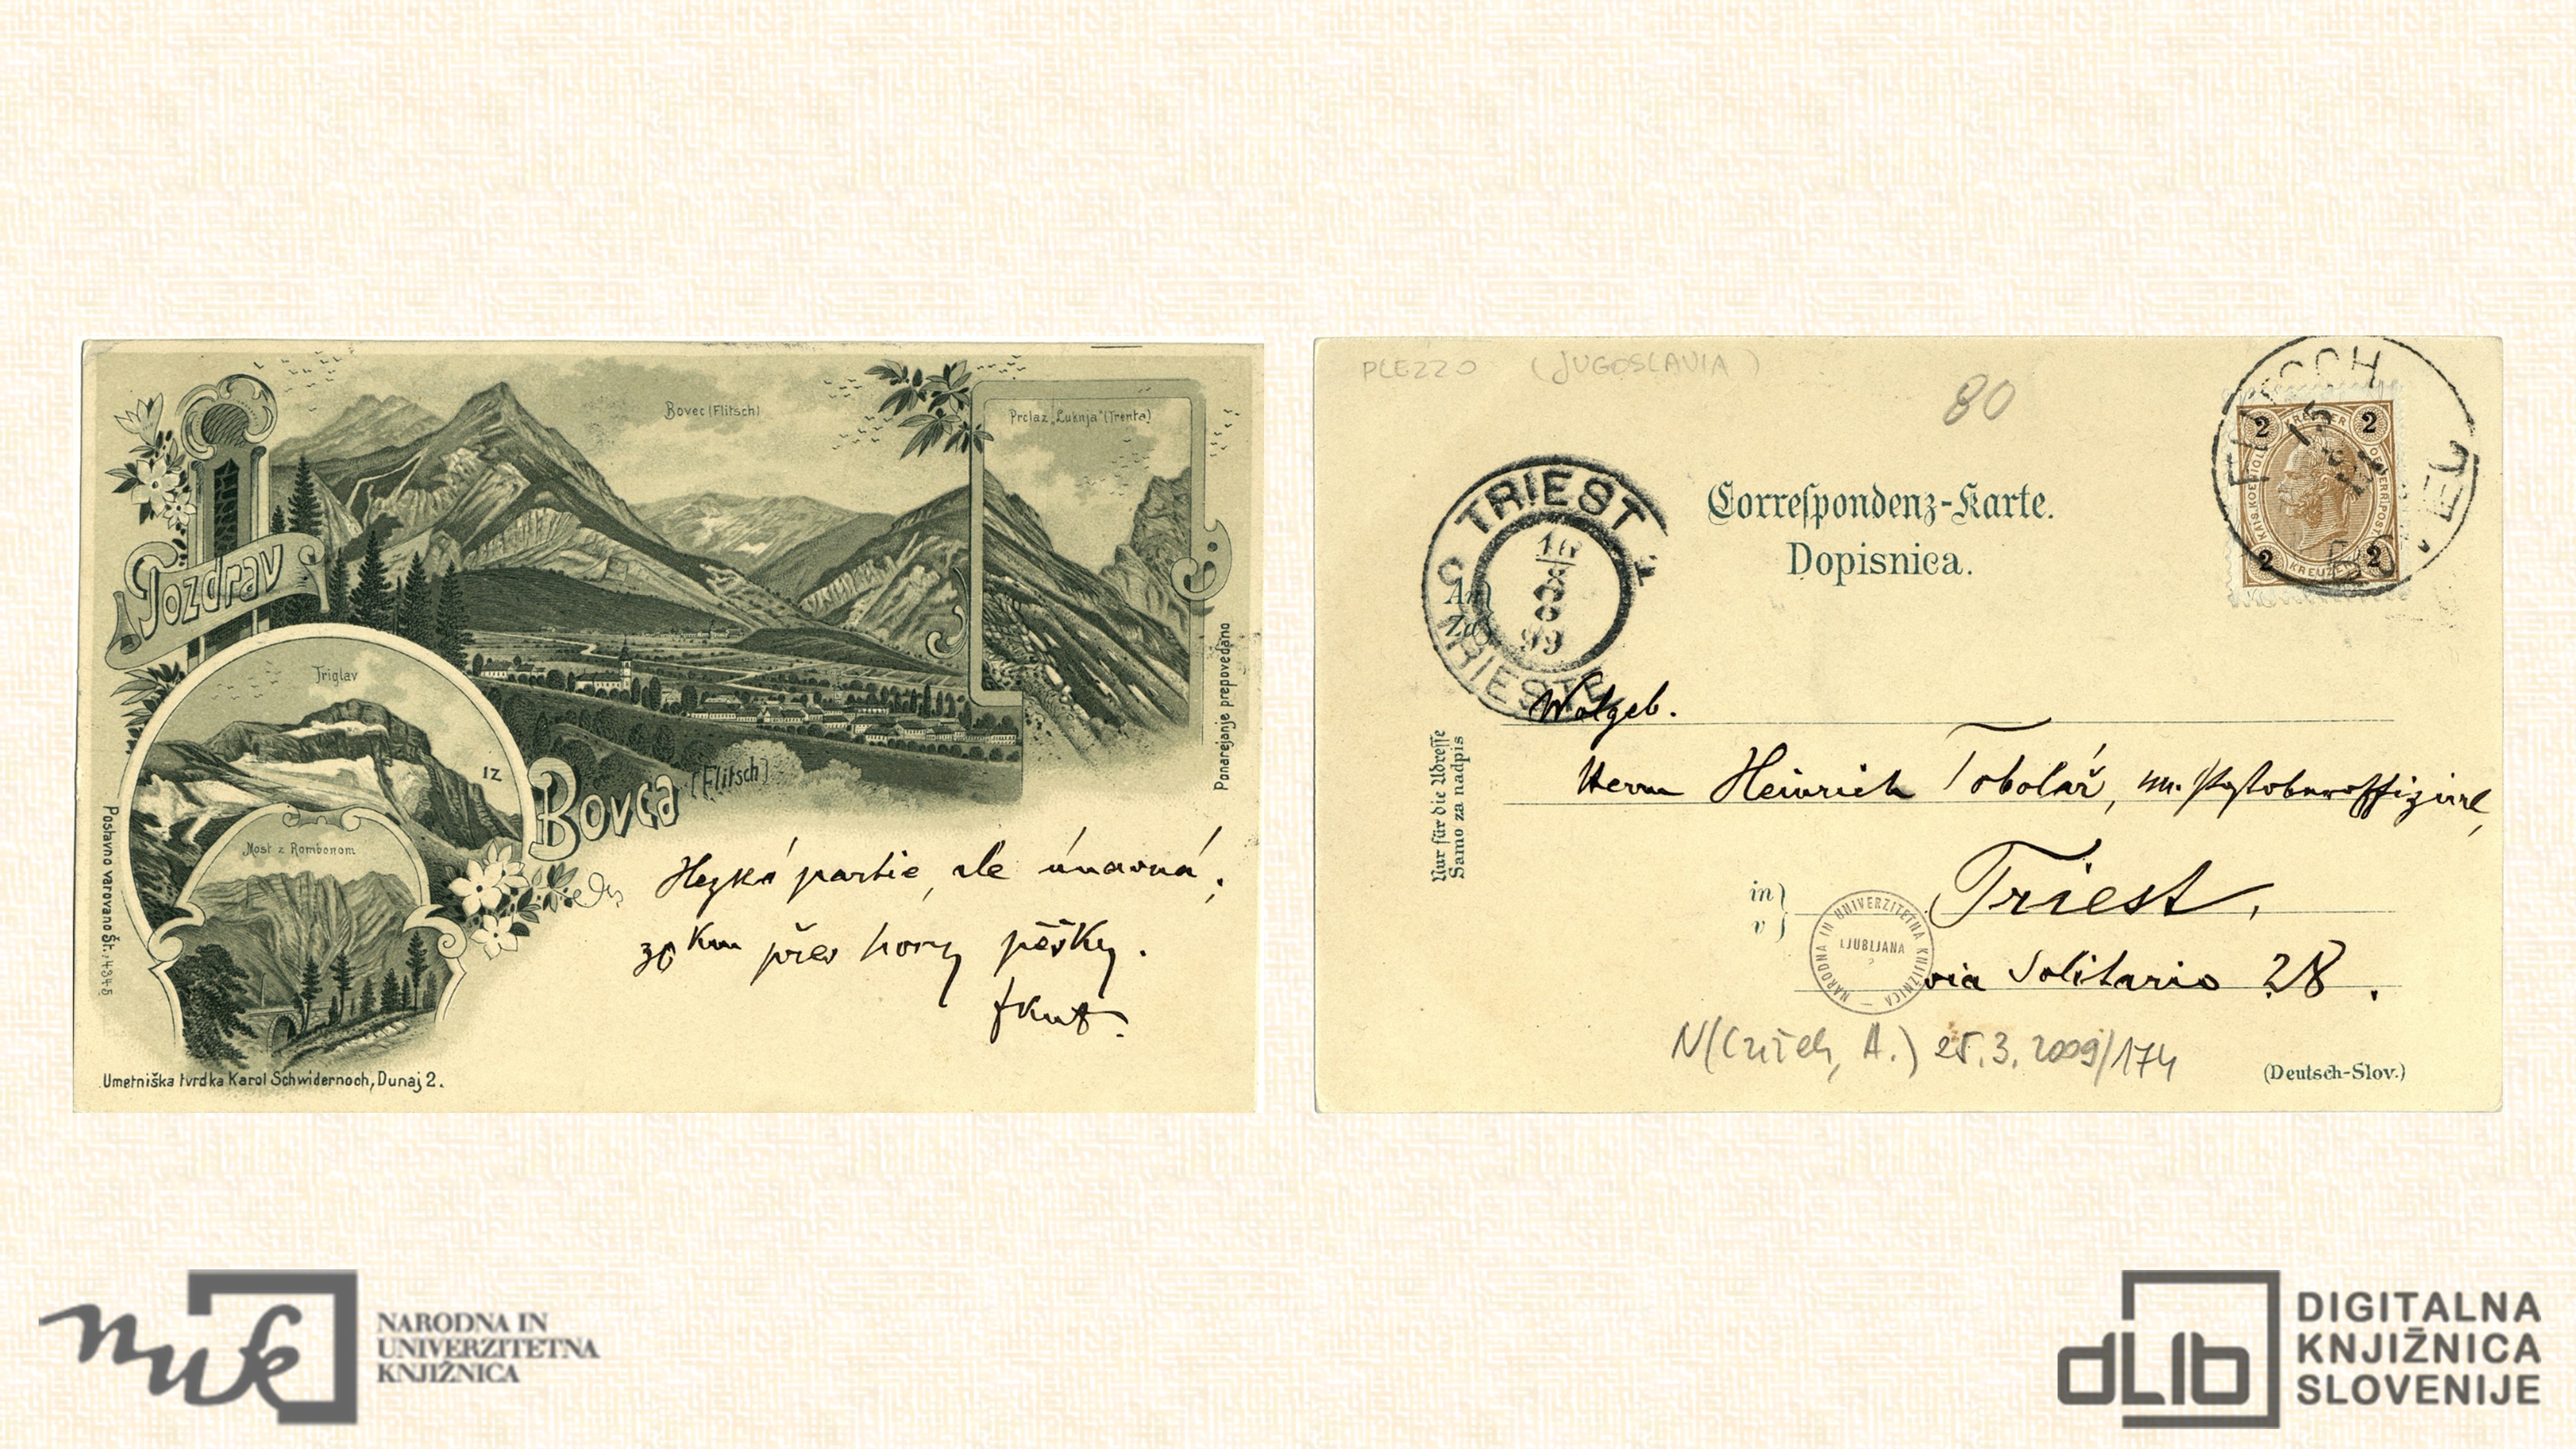 Bovec (Flitsch)
Prelaz „Luknja" (Trenta)
Pozdrav
Triglav
IZ
Bovca (Flitsch)
Most z Rombonom
Ponarejanje prepovedano
Postavno varovano Št. 4345
Hezká partie, ale únavná,
30 Km přes hory pěšky.
Umetniška tvrdka Karol Schwidernoch, Dunaj 2.
PLEZZO (JUGOSLAVIA)
80
FLITSCH
BOVEC
2 2
2 2
KREUZER
TRIEST
16
8
8
99
TRIESTE
Correspondenz-Karte.
Dopisnica.
An
Za
Wolgeb.
Herrn Heinrich Tobolář,
Nur für die Adresse
Samo za nadpis
in
v
Triest,
via Solitario 28.
NARODNA IN UNIVERZITETNA KNJIŽNICA
LJUBLJANA
25.3.2009/174
(Deutsch-Slov.)
nuk
NARODNA IN
UNIVERZITETNA
KNJIŽNICA
dLib
DIGITALNA
KNJIŽNICA
SLOVENIJE